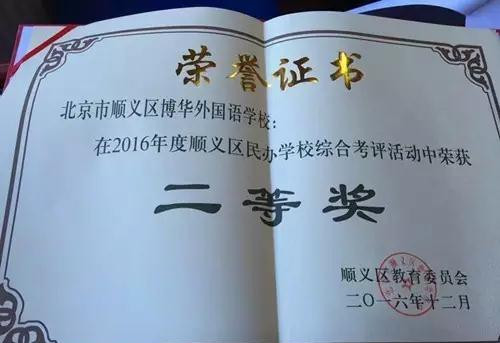 荣誉证书
北京市顺义区博华外国语学校：
在2016年度顺义区民办学校综合考评活动中荣获
二等奖
顺义区教育委员会
二〇一六年十二月